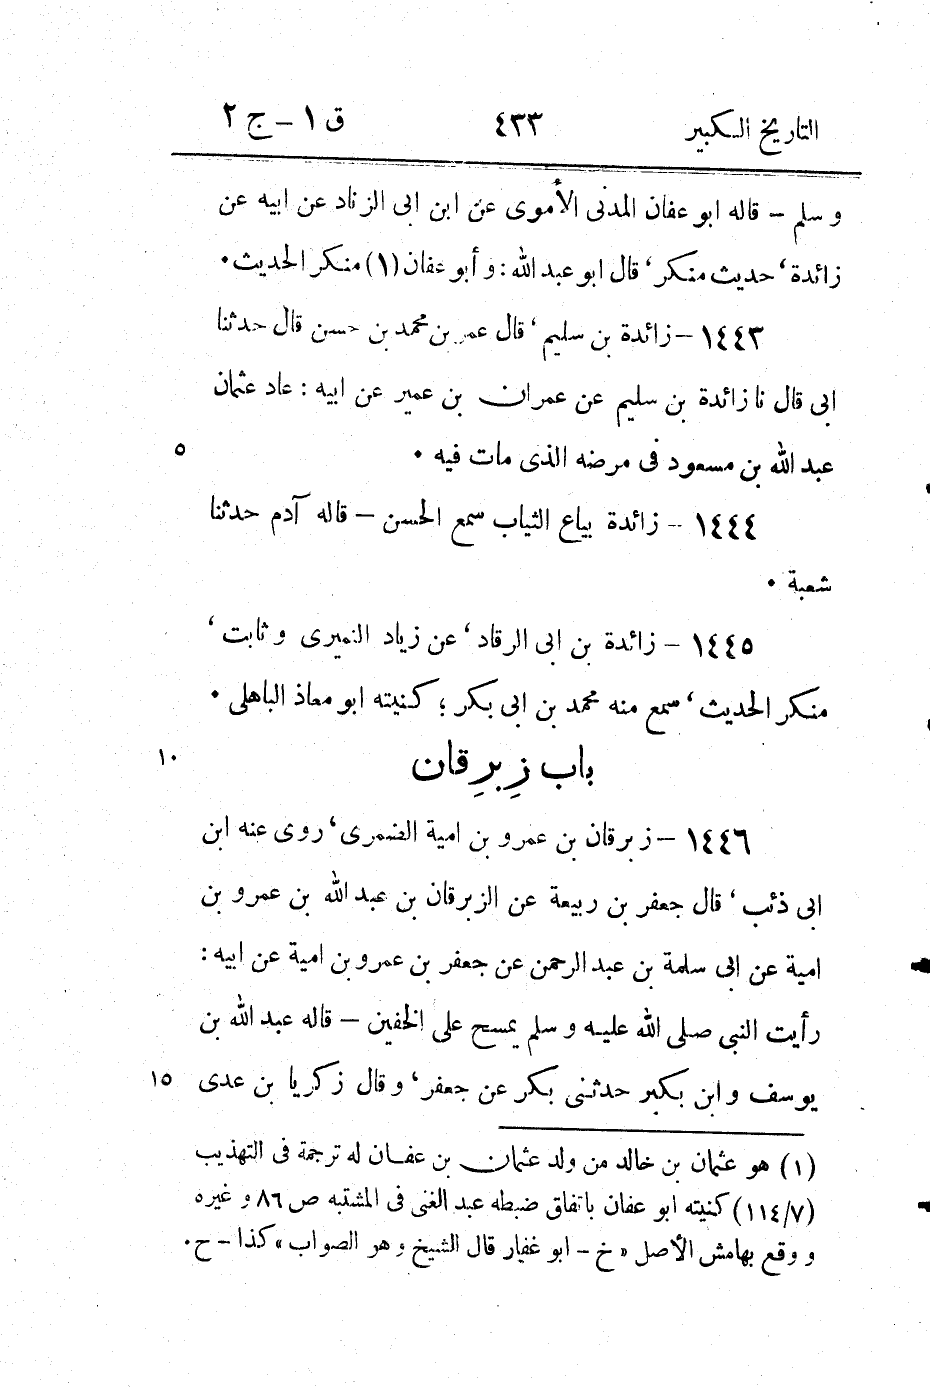 التاريخ الكبير ٤٣٣ ق ١ – ج ٢
و سلم – قاله ابو عفان المدنى الأموى عن ابن ابى الزناد عن ابيه عن
زائدة، حديث منكر، قال ابو عبد الله: و أبو عفان (١) منكر الحديث •
١٤٤٣ – زائدة بن سليم، قال عمر بن محمد بن حسن قال حدثنا
ابى قال نا زائدة بن سليم عن عمران بن عمير عن ابيه: عاد عثمان
عبد الله بن مسعود فى مرضه الذى مات فيه • ٥
١٤٤٤ – زائدة بياع الثياب سمع الحسن – قاله آدم حدثنا
شعبة •
١٤٤٥ – زائدة بن ابى الرقاد، عن زياد النميرى و ثابت،
منكر الحديث، سمع منه محمد بن ابى بكر؛ كنيته ابو معاذ الباهلى •
باب زِبرِقان ١٠
١٤٤٦ – زبرقان بن عمرو بن امية الضمرى، روى عنه ابن
ابى ذئب، قال جعفر بن ربيعة عن الزبرقان بن عبد الله بن عمرو بن
امية عن ابى سلمة بن عبد الرحمن عن جعفر بن عمرو بن امية عن ابيه:
رأيت النبى صلى الله عليه و سلم يمسح على الخفين – قاله عبد الله بن
يوسف و ابن بكير حدثنى بكر عن جعفر، و قال زكريا بن عدى ١٥
(١) هو عثمان بن خالد من ولد عثمان بن عفان له ترجمة فى التهذيب
(٧/١١٤) كنيته ابو عفان باتفاق ضبطه عبد الغنى فى المشتبه ص ٨٦ و غيره
و وقع بهامش الأصل «خ – ابو غفار قال الشيخ و هر الصواب» كذا – ح.